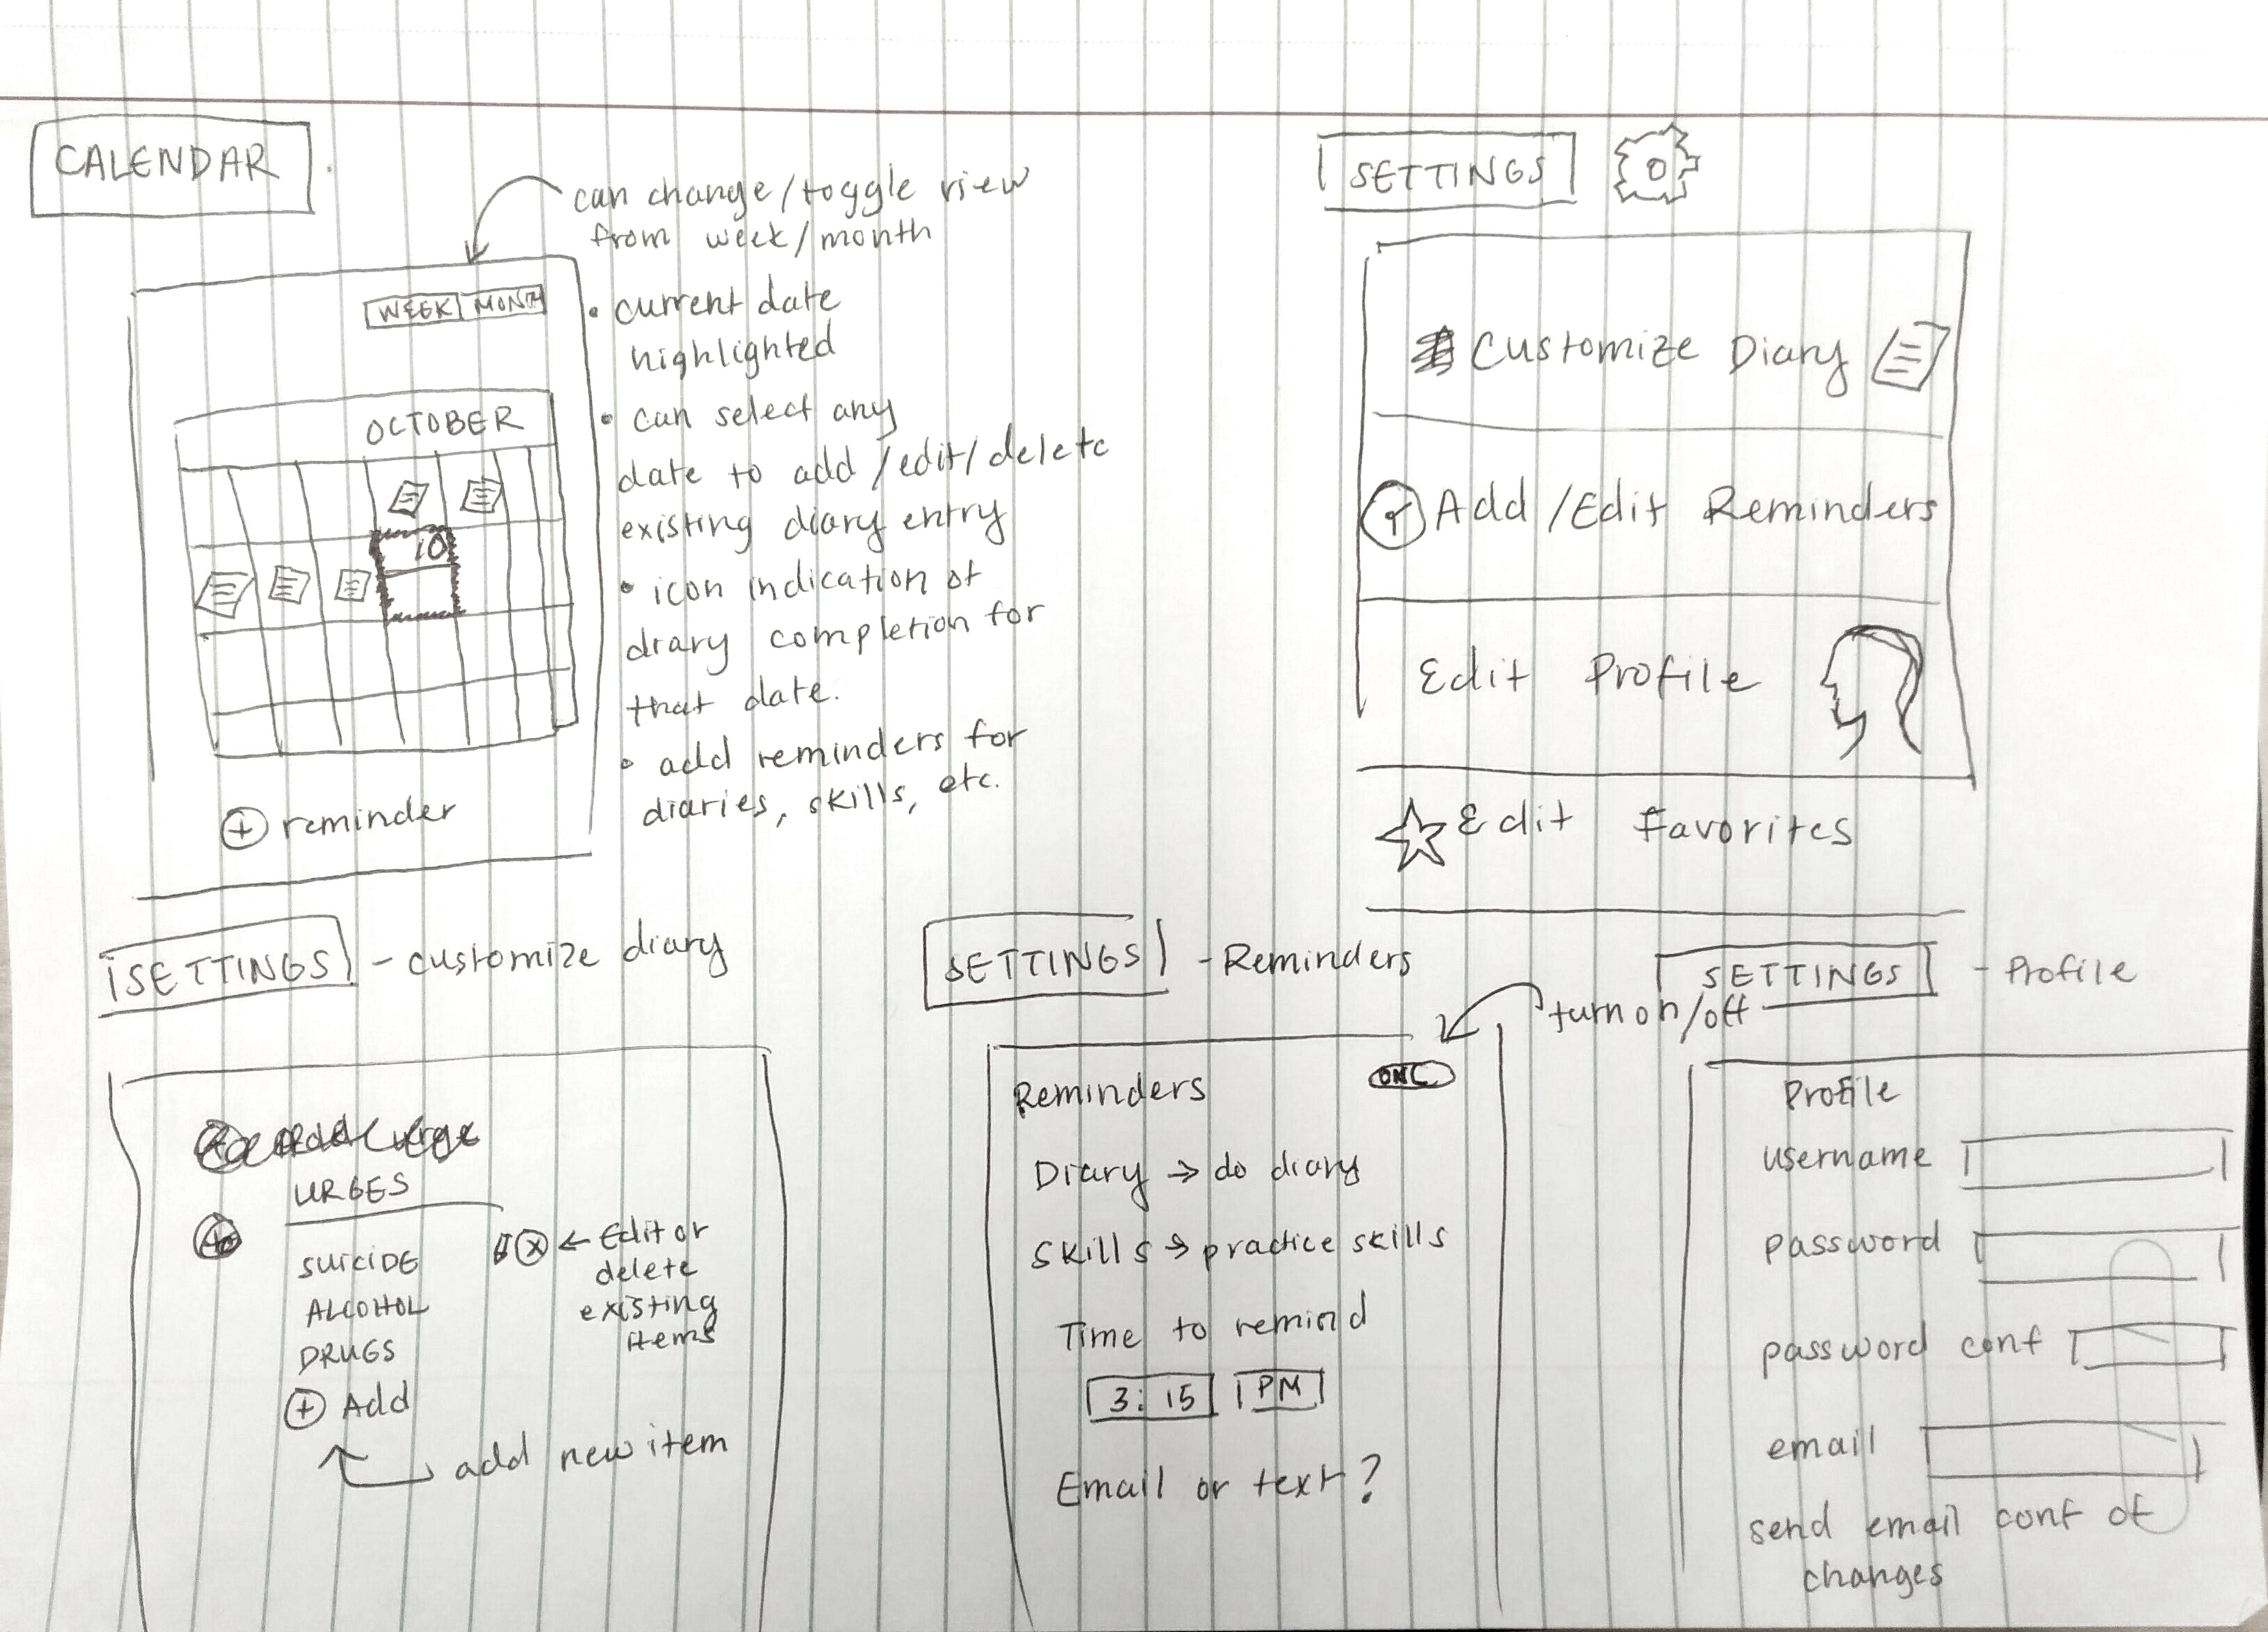 CALENDAR
can change/toggle view
from week/month
WEEK MONTH
• current date
highlighted
• can select any
date to add/edit/delete
existing diary entry
• icon indication of
diary completion for
that date.
• add reminders for
diaries, skills, etc.
OCTOBER
10
+ reminder
SETTINGS
Customize Diary
Add/Edit Reminders
Edit Profile
Edit Favorites
SETTINGS - customize diary
URGES
SUICIDE
ALCOHOL
DRUGS
+ Add
x ← Edit or
delete
existing
items
add new item
SETTINGS - Reminders
turn on/off
Reminders
ON
Diary → do diary
Skills → practice skills
Time to remind
3:15 PM
Email or text?
SETTINGS - Profile
Profile
username
password
password conf
email
send email conf of
changes